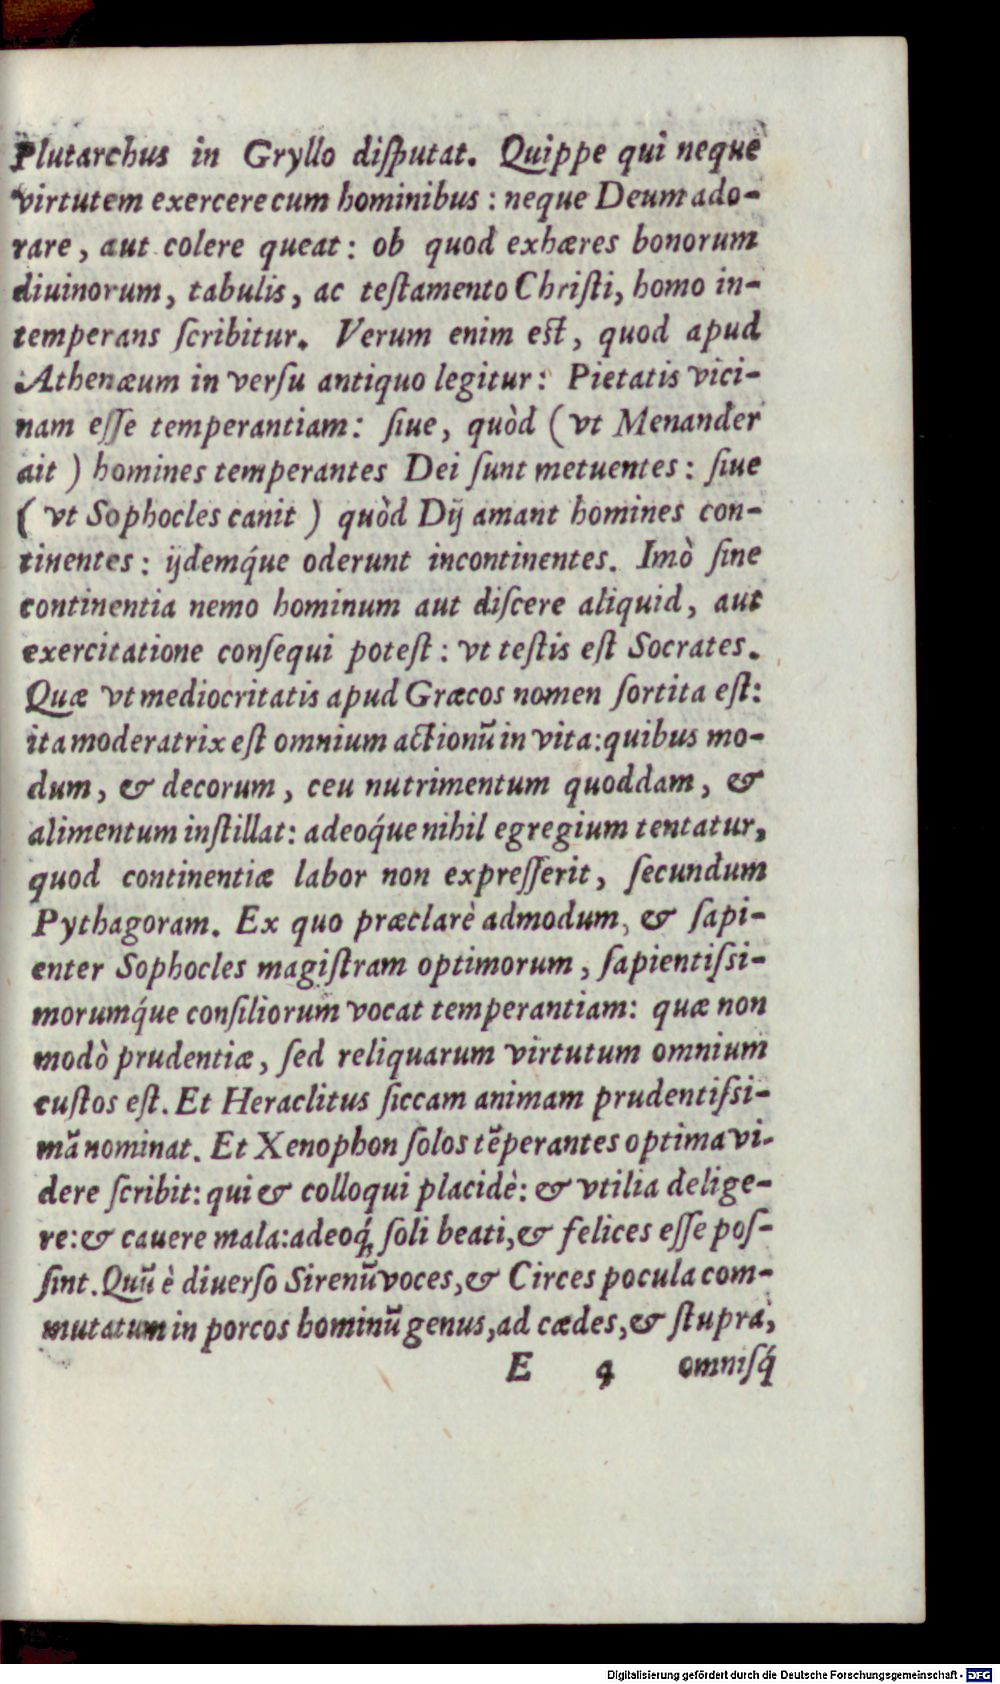 Plutarchus in Gryllo diſputat. Quippe qui neque
virtutem exercere cum hominibus : neque Deum ado-
rare, aut colere queat: ob quod exhæres bonorum
diuinorum, tabulis, ac teſtamento Chriſti, homo in-
temperans ſcribitur. Verum enim eſt, quod apud
Athenæum in verſu antiquo legitur: Pietatis vici-
nam eſſe temperantiam: ſiue, quòd (vt Menander
ait) homines temperantes Dei ſunt metuentes: ſiue
(vt Sophocles canit) quòd Dij amant homines con-
tinentes: ijdemq́ue oderunt incontinentes. Imò ſine
continentia nemo hominum aut diſcere aliquid, aut
exercitatione conſequi poteſt: vt teſtis eſt Socrates.
Quæ vt mediocritatis apud Græcos nomen ſortita eſt:
ita moderatrix eſt omnium actionũ in vita: quibus mo-
dum, & decorum, ceu nutrimentum quoddam, &
alimentum inſtillat: adeoq́ue nihil egregium tentatur,
quod continentiæ labor non expreſſerit, ſecundum
Pythagoram. Ex quo præclarè admodum, & ſapi-
enter Sophocles magiſtram optimorum, ſapientiſsi-
morumq́ue conſiliorum vocat temperantiam: quæ non
modò prudentiæ, ſed reliquarum virtutum omnium
cuſtos eſt. Et Heraclitus ſiccam animam prudentiſsi-
mã nominat. Et Xenophon ſolos tẽperantes optima vi-
dere ſcribit: qui & colloqui placidè: & vtilia delige-
re: & cauere mala: adeoq́; ſoli beati, & felices eſſe poſ-
ſint. Quũ è diuerſo Sirenũ voces, & Circes pocula com-
mutatum in porcos hominũ genus, ad cædes, & ſtupra,
E 4 omniſq́
Digitalisierung gefördert durch die Deutsche Forschungsgemeinschaft - DFG